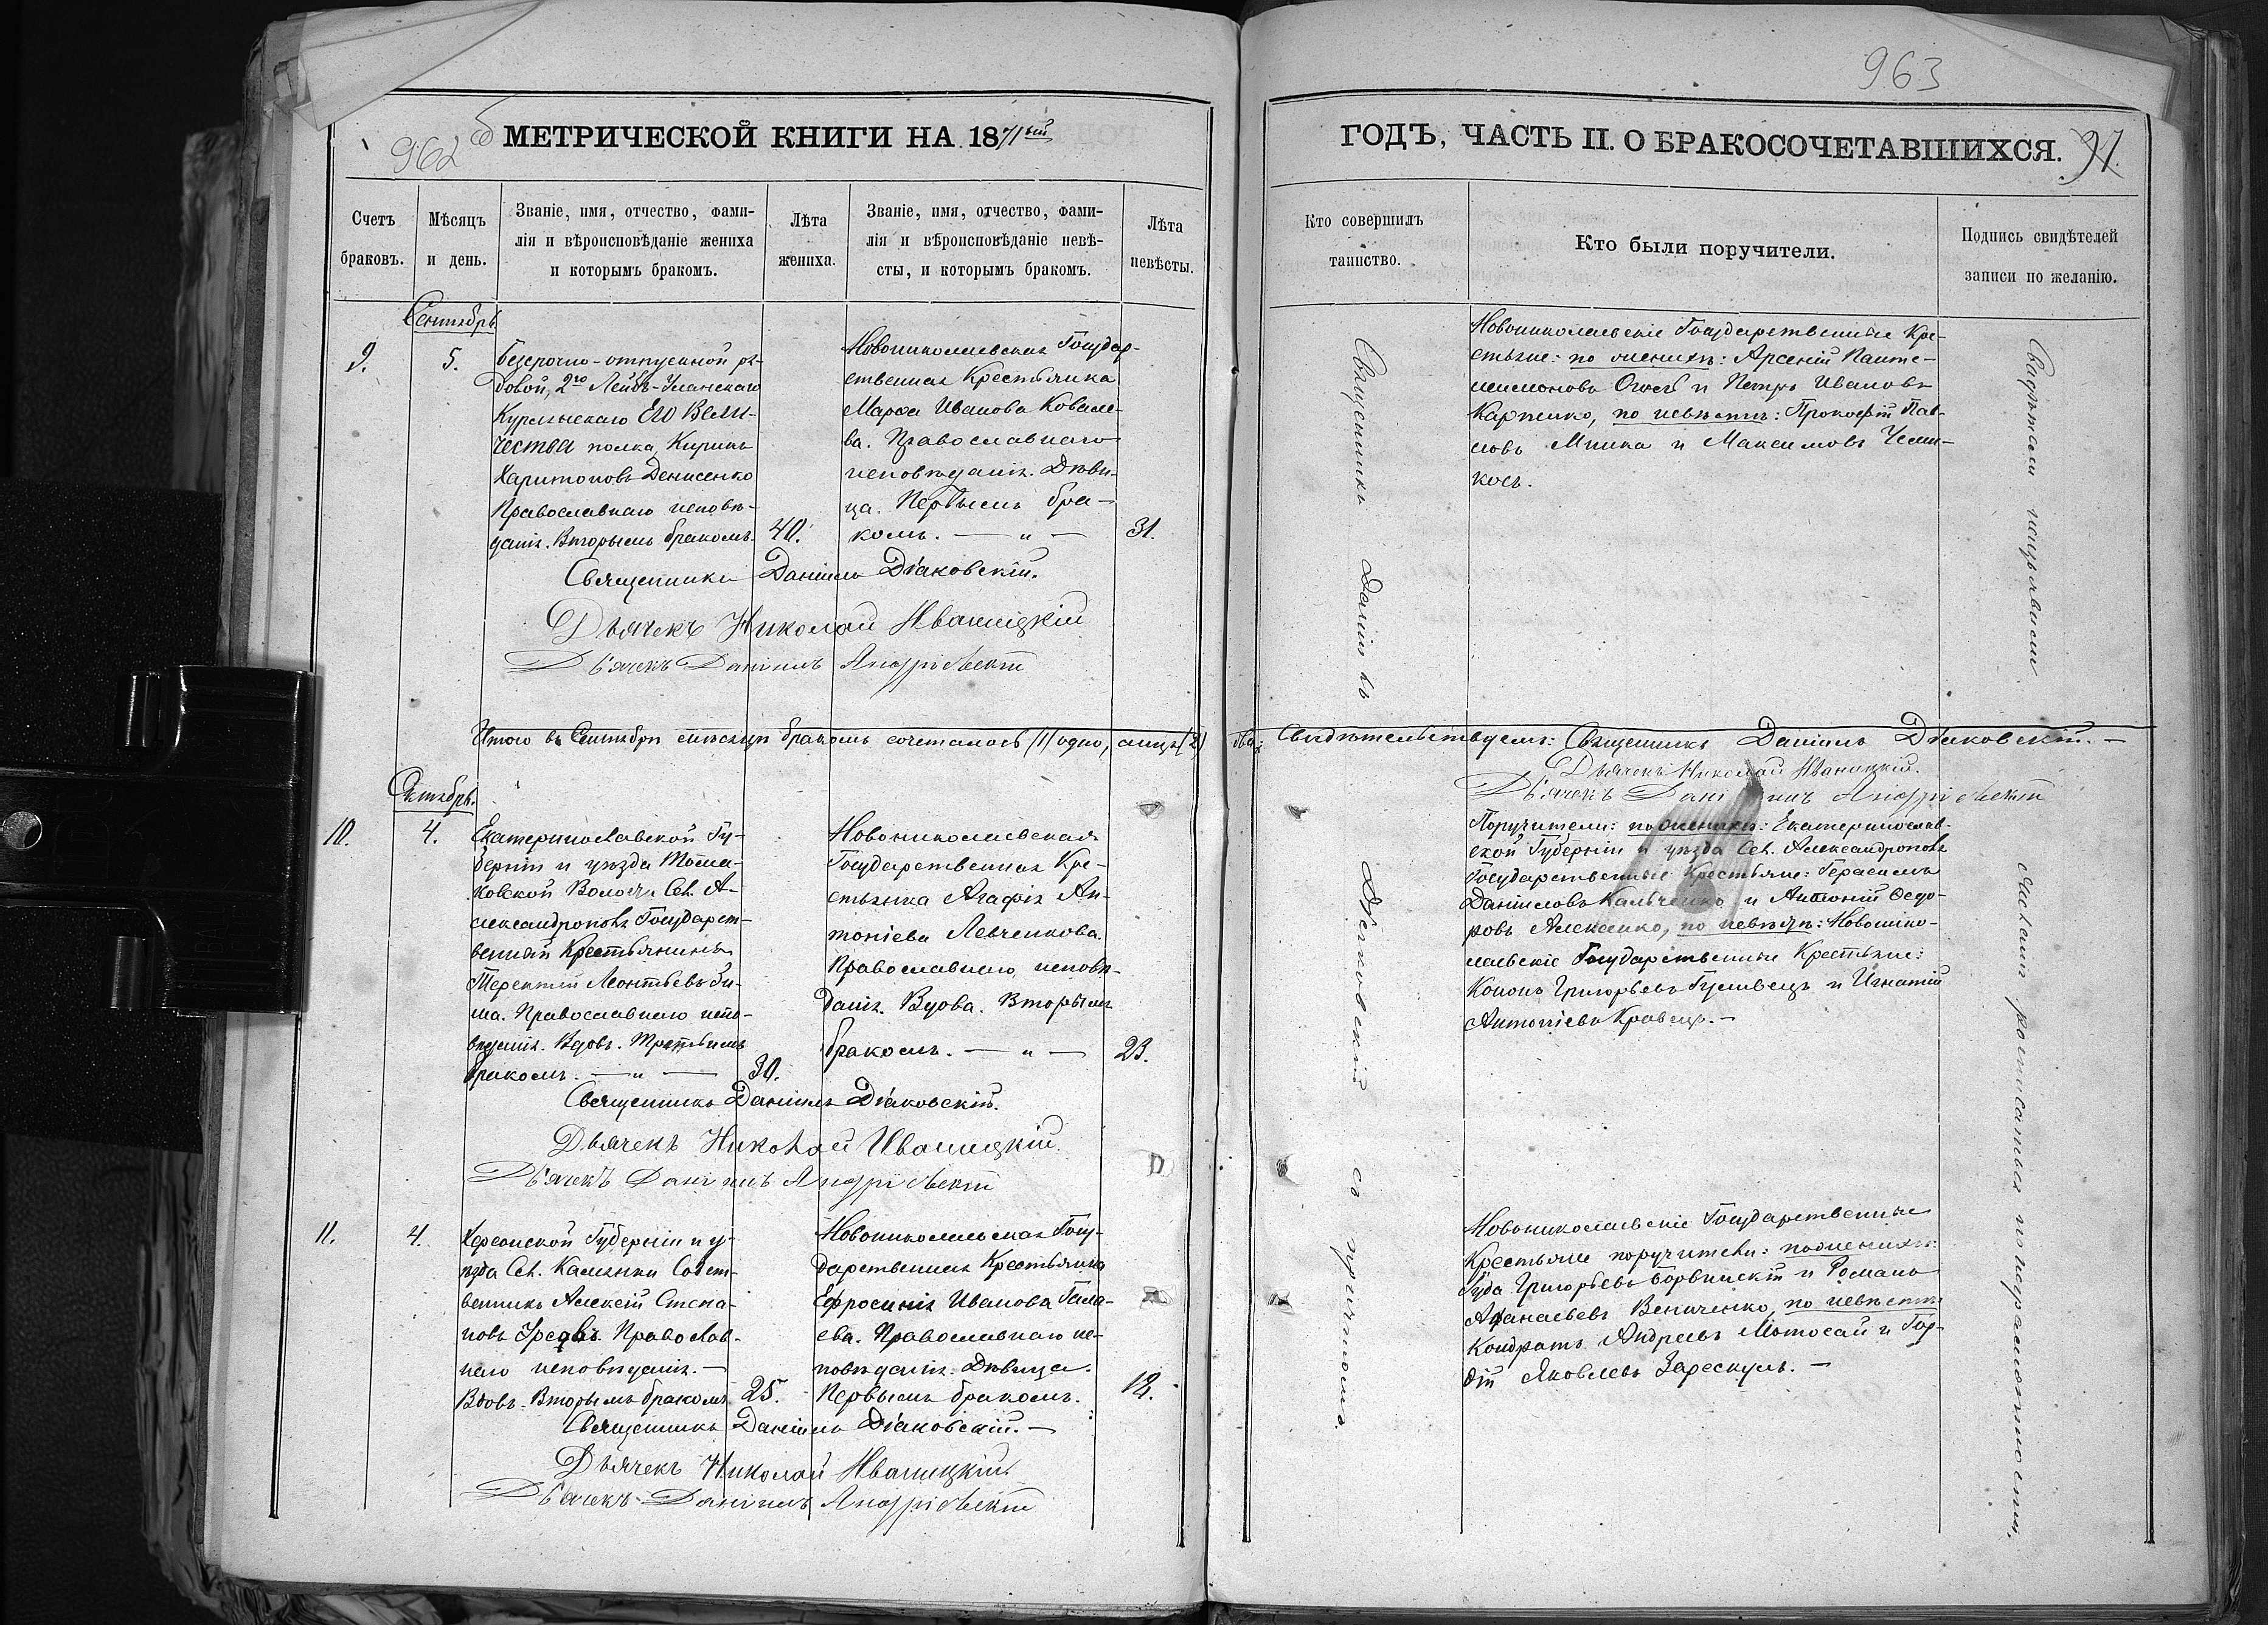 962
МЕТРИЧЕСКОЙ КНИГИ НА 1871ый
Счетъ браковъ.
Мѣсяцъ и день.
Званіе, имя, отчество, фами-
лія и вѣроисповѣданіе жениха
и которымъ бракомъ.
Лѣта жениха.
Званіе, имя, отчество, фами-
лія и вѣроисповѣданіе невѣ-
сты, и которымъ бракомъ.
Лѣта невѣсты.
Сентябрь
9.
5.
Безсрочно-отпускной ря-
довой, 2го Лейбъ-Уланскаго
Курляндскаго Его Вели-
чества полка, Кирикъ
Харитоновъ Денисенко
Православнаго исповѣ-
данія. Вторымъ бракомъ.
40.
Новониколаевская Государ-
ственная Крестьянка
Марѳа Иванова Ковале-
ва. Православнаго
исповѣданія. Дѣви-
ца. Первымъ бра-
комъ. — „ —
31.
Священникъ Даніилъ Діаковскій.
Дьячекъ Николай Иваницкій
Дьячекъ Даніилъ Андріевскій
Итого въ Сентябрѣ мѣсяцѣ бракомъ сочеталось (1) одно, лицъ (2)
Октябрь.
10.
4.
Екатеринославской Гу-
берніи и уѣзда Тома-
ковской Волости Сел. А-
лександрополя Государст-
венный Крестьянинъ
Терентій Леонтьевъ
ма. Православнаго испо-
вѣданія. Вдовъ. Третьимъ
бракомъ. — „ —
30.
Новониколаевская
Государственная Кре-
стьянка Агафія Ан-
тоніева Левченкова.
Православнаго исповѣ-
данія. Вдова. Вторымъ
бракомъ. — „ —
23.
Священникъ Даніилъ Діаковскій.
Дьячекъ Николай Иваницкій.
Дьячекъ Даніилъ Андріевскій
11.
4.
Херсонской Губерніи и у-
ѣзда Сел. Каменки Собст-
венникъ Алексій Степа-
новъ Православ-
наго исповѣданія. —
Вдовъ. Вторымъ бракомъ.
25.
Новониколаевская Госу-
дарственная Крестьянка
Ефросинія Иванова Гала-
ева. Православнаго ис-
повѣданія. Дѣвица.
Первымъ бракомъ.
18.
Священникъ Даніилъ Діаковскій. —
Дьячекъ Николай Иваницкій
Дьячекъ Даніилъ Андріевскій
963
ГОДЪ, ЧАСТЬ II. О БРАКОСОЧЕТАВШИХСЯ.
91.
Кто совершилъ таинство.
Кто были поручители.
Подпись свидѣтелей
записи по желанію.
Священникъ Даніилъ Діаковскій съ причтомъ.
Новониколаевскіе Государственные Кре-
стьяне: по женихѣ: Арсеній Панте-
лимоновъ и Петръ Ивановъ
Карпенко, по невѣстѣ: Прокофій Пав-
ловъ Мшка и Максимовъ
косъ.
Свидѣтельствуемъ: Священникъ Даніилъ Діаковскій. —
Дьячекъ Николай Иваницкій.
Дьячекъ Даніилъ Андріевскій
Поручители: по женихѣ: Екатеринослав-
ской Губерніи и уѣзда Сел. Александрополя
Государственные Крестьяне: Герасимъ
Даніиловъ Кальченко и Антоній Ѳедо-
ровъ Алексенко, по невѣстѣ: Новонико-
лаевскіе Государственные Крестьяне:
Кононъ Григорьевъ и Игнатій
Антоніевъ Кравецъ. —
Новониколаевскіе Государственные
Крестьяне поручители: по женихѣ:
Григорьевъ и Романъ
Афанасьевъ Величенко, по невѣстѣ
Кондратъ Андреевъ и Гор-
дій Яковлевъ Зарескулъ. —
Свидѣтели неграмотные.